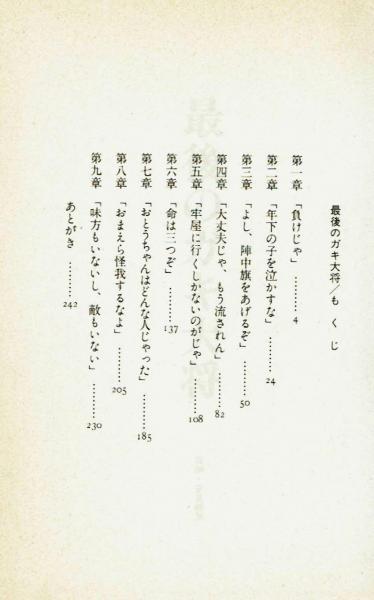 最後のガキ大将／もくじ
第一章「負けじゃ」…………4
第二章「年下の子を泣かすな」…………24
第三章「よし、陣中旗をあげるぞ」…………50
第四章「大丈夫じゃ、もう流されん」…………82
第五章「牢屋に行くしかないのがじゃ」…………108
第六章「命は三つぞ」…………137
第七章「おとうちゃんはどんな人じゃった」…………185
第八章「おまえら怪我するなよ」…………205
第九章「味方もいないし、敵もいない」…………230
あとがき…………242